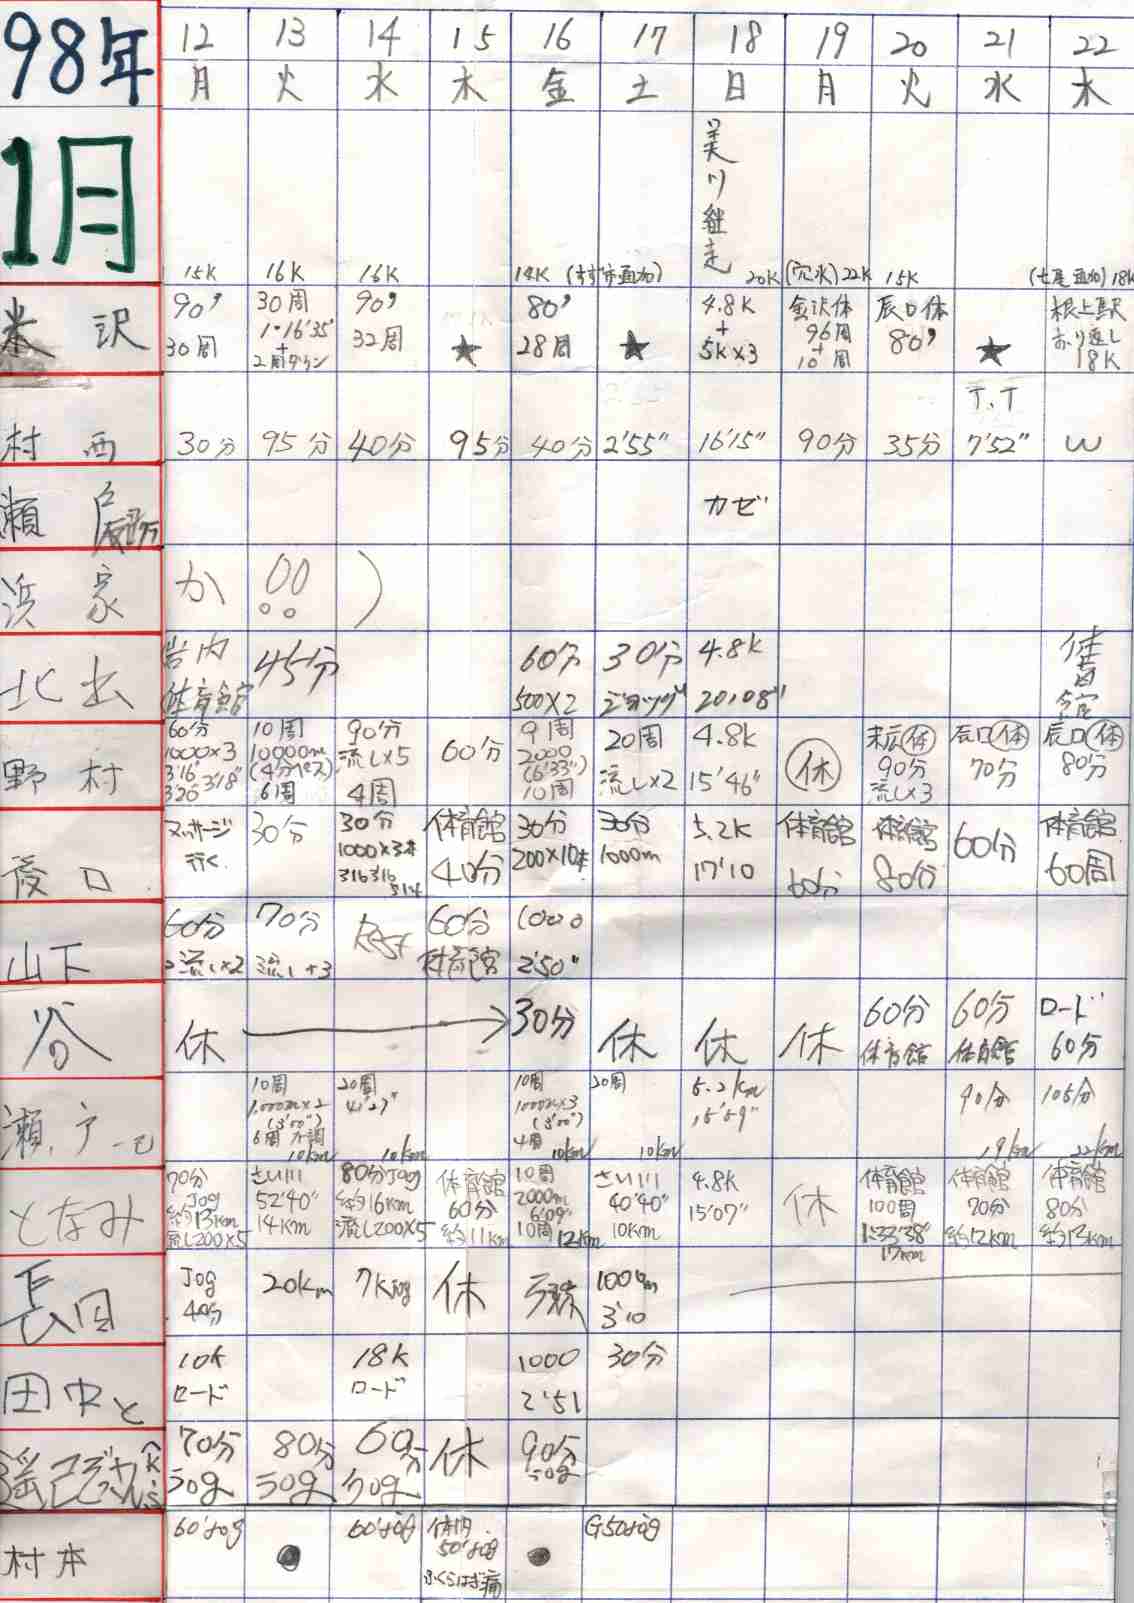 98年
12 13 14 15 16 17 18 19 20 21 22
月 火 水 木 金 土 日 月 火 水 木
1月
美川継走
15K 16K 16K 14K (すず市直加) 20K (穴水) 22K 15K (七尾直加) 18K
米沢
90' 30周 90' 80' 4.8K 金沢体 辰口体 根上駅
30周 1°16'35" 32周 ★ 28周 ★ + 96周 80' ★ おり返し
+ 5K×3 + 18K
2周ダウン 10周
T.T
村西 30分 95分 40分 95分 40分 2'55" 16'15" 90分 35分 7'52" W
瀬戸
カゼ
浜家 か
北出
岩内 45分 60分 30分 4.8K 体育館
体育館 500×2 ジョッグ 20'08"
野村
60分 10周 90分 60分 9周 20周 4.8K 休 末広体 辰口体 辰口体
1000×3 10000m 流し×5 2000 流し×2 15'46" 90分 70分 80分
3'16" 3'18" (4分ペース) 4周 (6'33") 流し×3
326 6周 10周
マッサージ 30分 30分 体育館 30分 30分 5.2K 体育館 体育館 60分 体育館
行く 1000×3本 40分 200×10本 1000m 17'10 60分 80分 60周
316 316
山下
60分 70分 60分 1000
流し×2 流し+3 体育館 2'50"
谷
休 → 30分 休 休 休 60分 60分 ロード
体育館 体育館 60分
瀬戸
10周 20周 10周 20周 5.2km 90分 105分
1000m×2 41'27" 1000m×3 15'59"
(3'00") (3'00")
6周 4周
10km 10km 10km 10km 19km 22km
となみ
70分 さい川 80分Jog 体育館 10周 さい川 4.8K 休 体育館 体育館 体育館
Jog 52'40" 約16km 60分 2000m 40'40" 15'07" 100周 70分 80分
約13km 14km 流し200×5 約11km 6'09" 10km 1:33'38" 約12km 約13km
流し200×5 10周 12km 17km
長田
Jog 20km 7Kjog 休 1000m
40分 3'10
田中と
10K 18K 1000 30分
ロード ロード 2'51
70分 80分 60分 休 90分
jog jog jog jog
村本
60'jog ● 60'jog 体内 ● G50jog
50'jog
ふくらはぎ痛